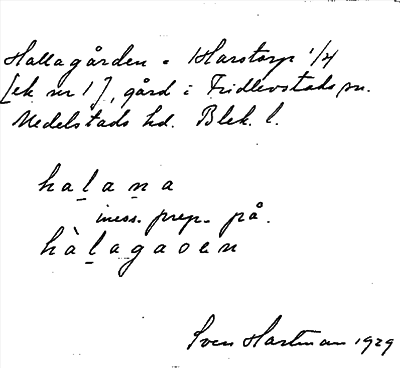 Hallagården = Harstorp 1/4
[ek nr 1], gård i Fridlevstads sn.
Medelstads hd. Blek. l.
halana
iness. prep. på.
hàlagaoen
Sven Hartman 1929